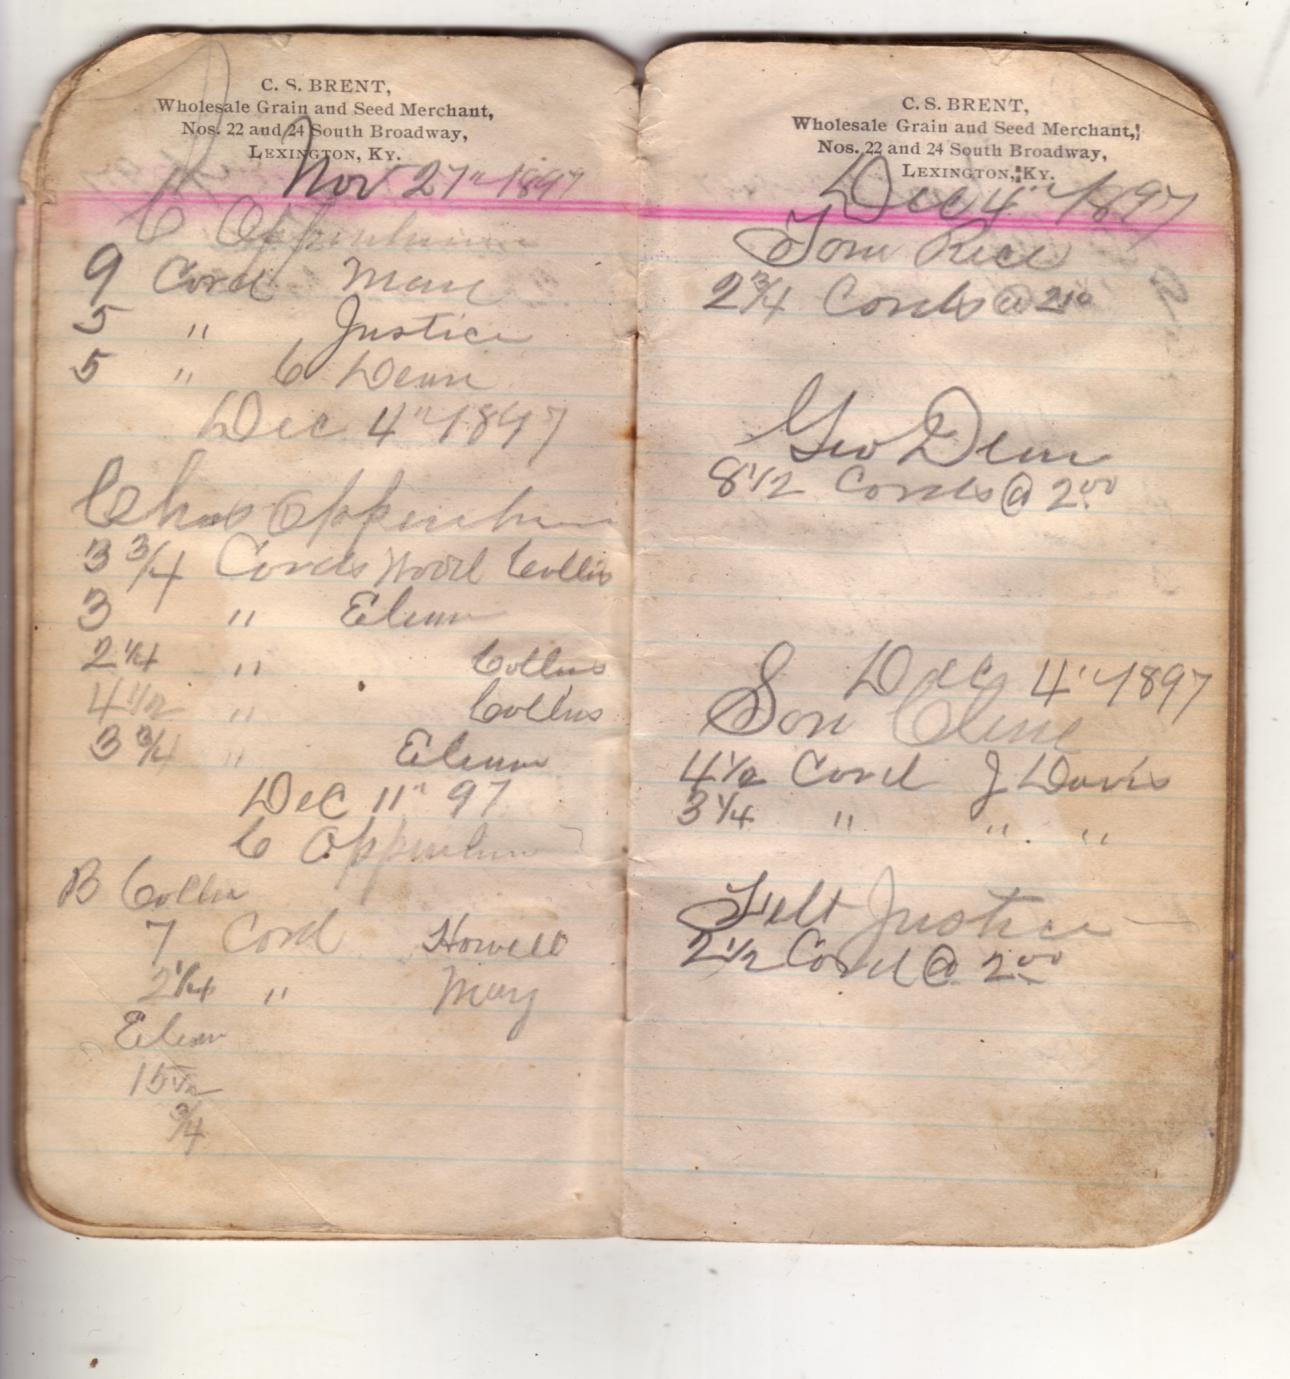 C. S. BRENT,
Wholesale Grain and Seed Merchant,
Nos. 22 and 24 South Broadway,
LEXINGTON, KY.
Nov 27" 1897
C
9 Cord
5 " Justice
5 " C Dean
Dec 4" 1897
Chas
3 3/4 Cords Wood Collis
3 " Elam
2 1/4 " Collins
4 1/2 " Collins
3 3/4 " Elam
Dec 11" 97
C
B
7 Cord Howell
2 1/4 " May
Elam
15 1/2
3/4
C. S. BRENT,
Wholesale Grain and Seed Merchant,
Nos. 22 and 24 South Broadway,
LEXINGTON, KY.
Dec 4" 1897
Tom Rice
2 3/4 Cords @ 210
Geo Dean
8 1/2 Cords @ 2.00
Dec 4" 1897
Son Cline
4 1/2 Cord J Davis
3 1/4 " " "
Felt Justice
2 1/2 Cord @ 2.00